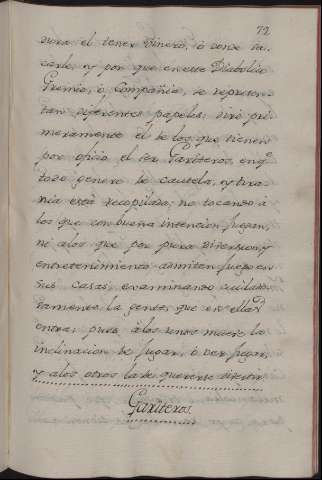 72
dura el tener Dinero, ó donde sa-
carle, y por que en este Diabolico
Gremio, ó Compañia, se represen-
tan diferentes papeles; diré pri-
meramente el de los que tienen
por oficio el ser Gariteros, en qᵉ
todo genero de cautela, y tira-
nia está recopilado, no tocando á
los que con buena intencion juegan,
ni alos que por pura Diversion, y
entretenimiento admiten juego en
sus casas, examinando cuidado-
samente la gente, que en ellas
entra; pues alos unos mueve la
inclinacion de jugar, ó ver jugar,
y alos otros la de quererse divertir
Gariteros